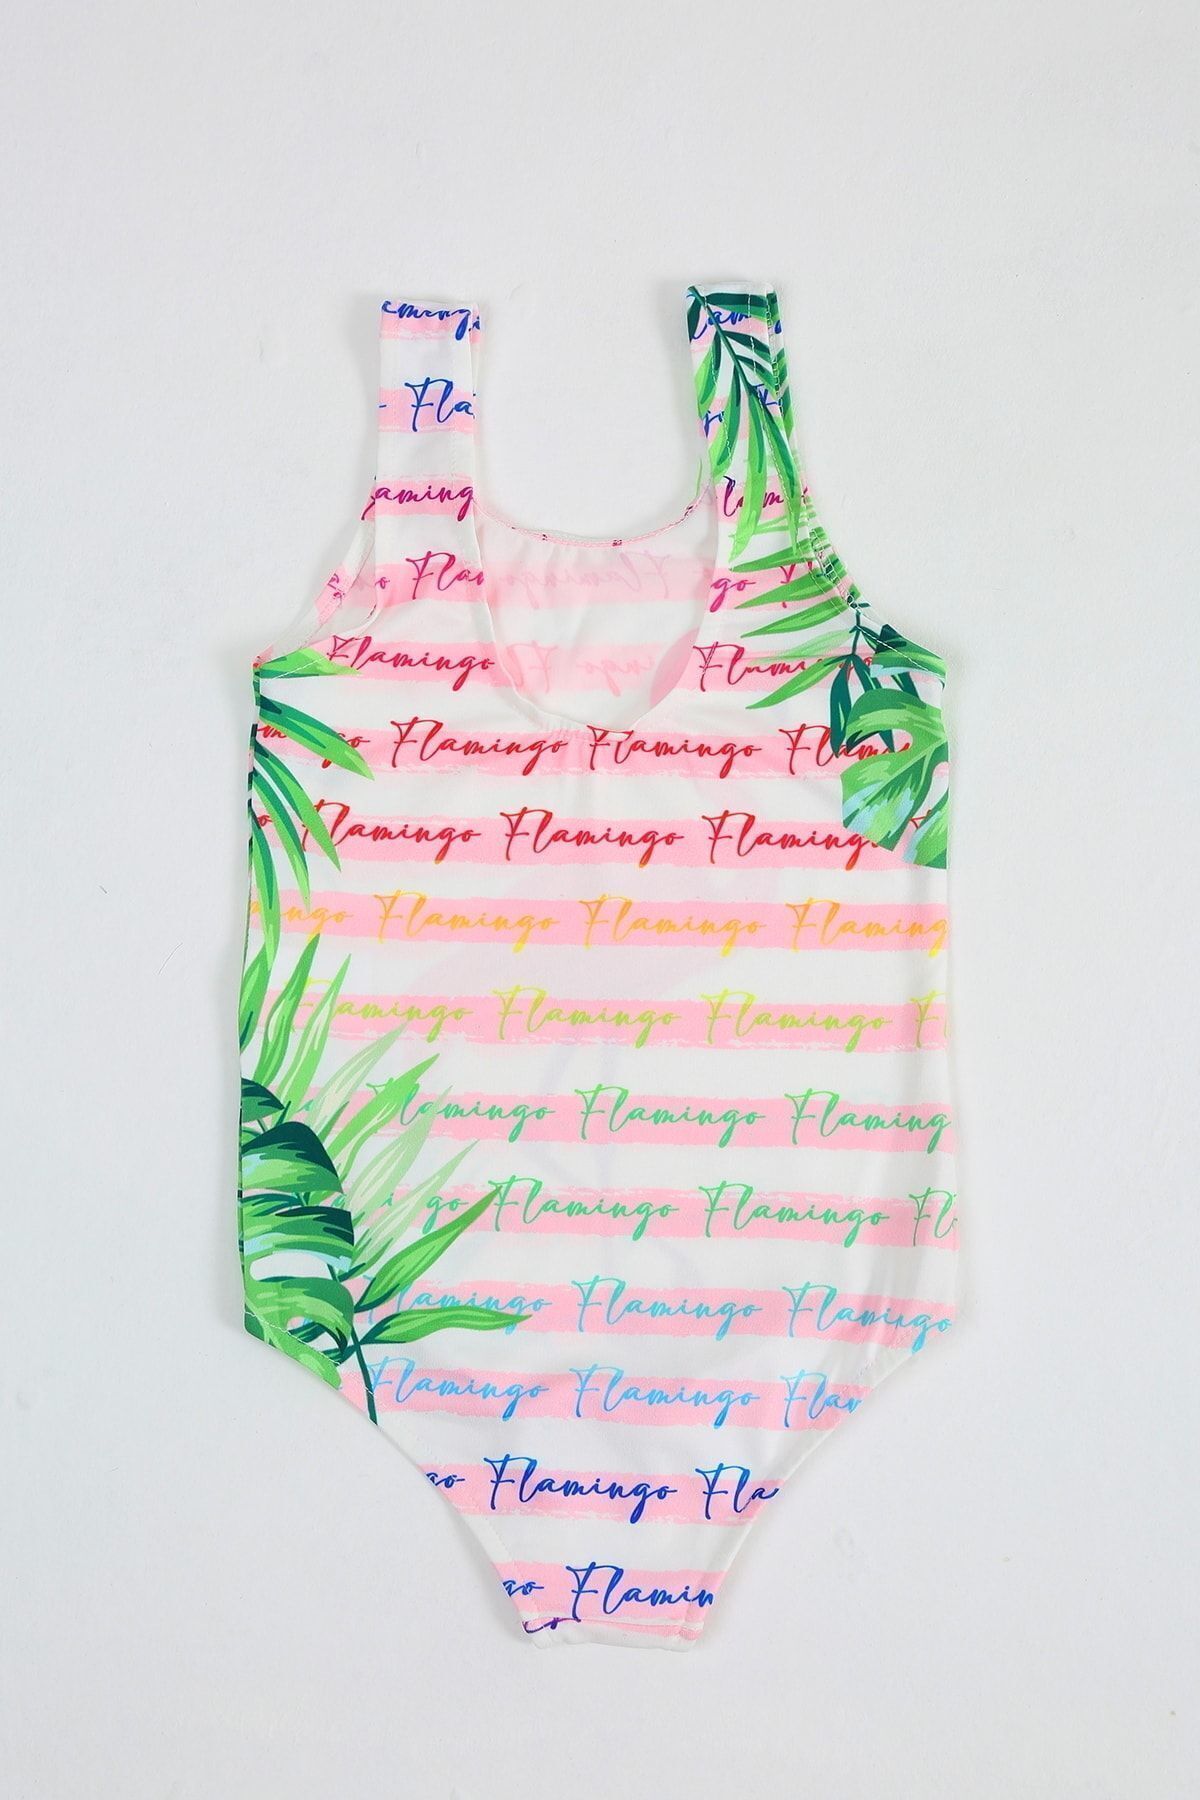 Flamingo
Flamingo Flamingo
Flamingo Flamingo
Flamingo Flamingo
Flamingo Flamingo Flamingo
Flamingo Flamingo
Flamingo Flamingo
Flamingo Flamingo
Flamingo Flamingo Flamingo
Flamingo Flamingo
Flamingo